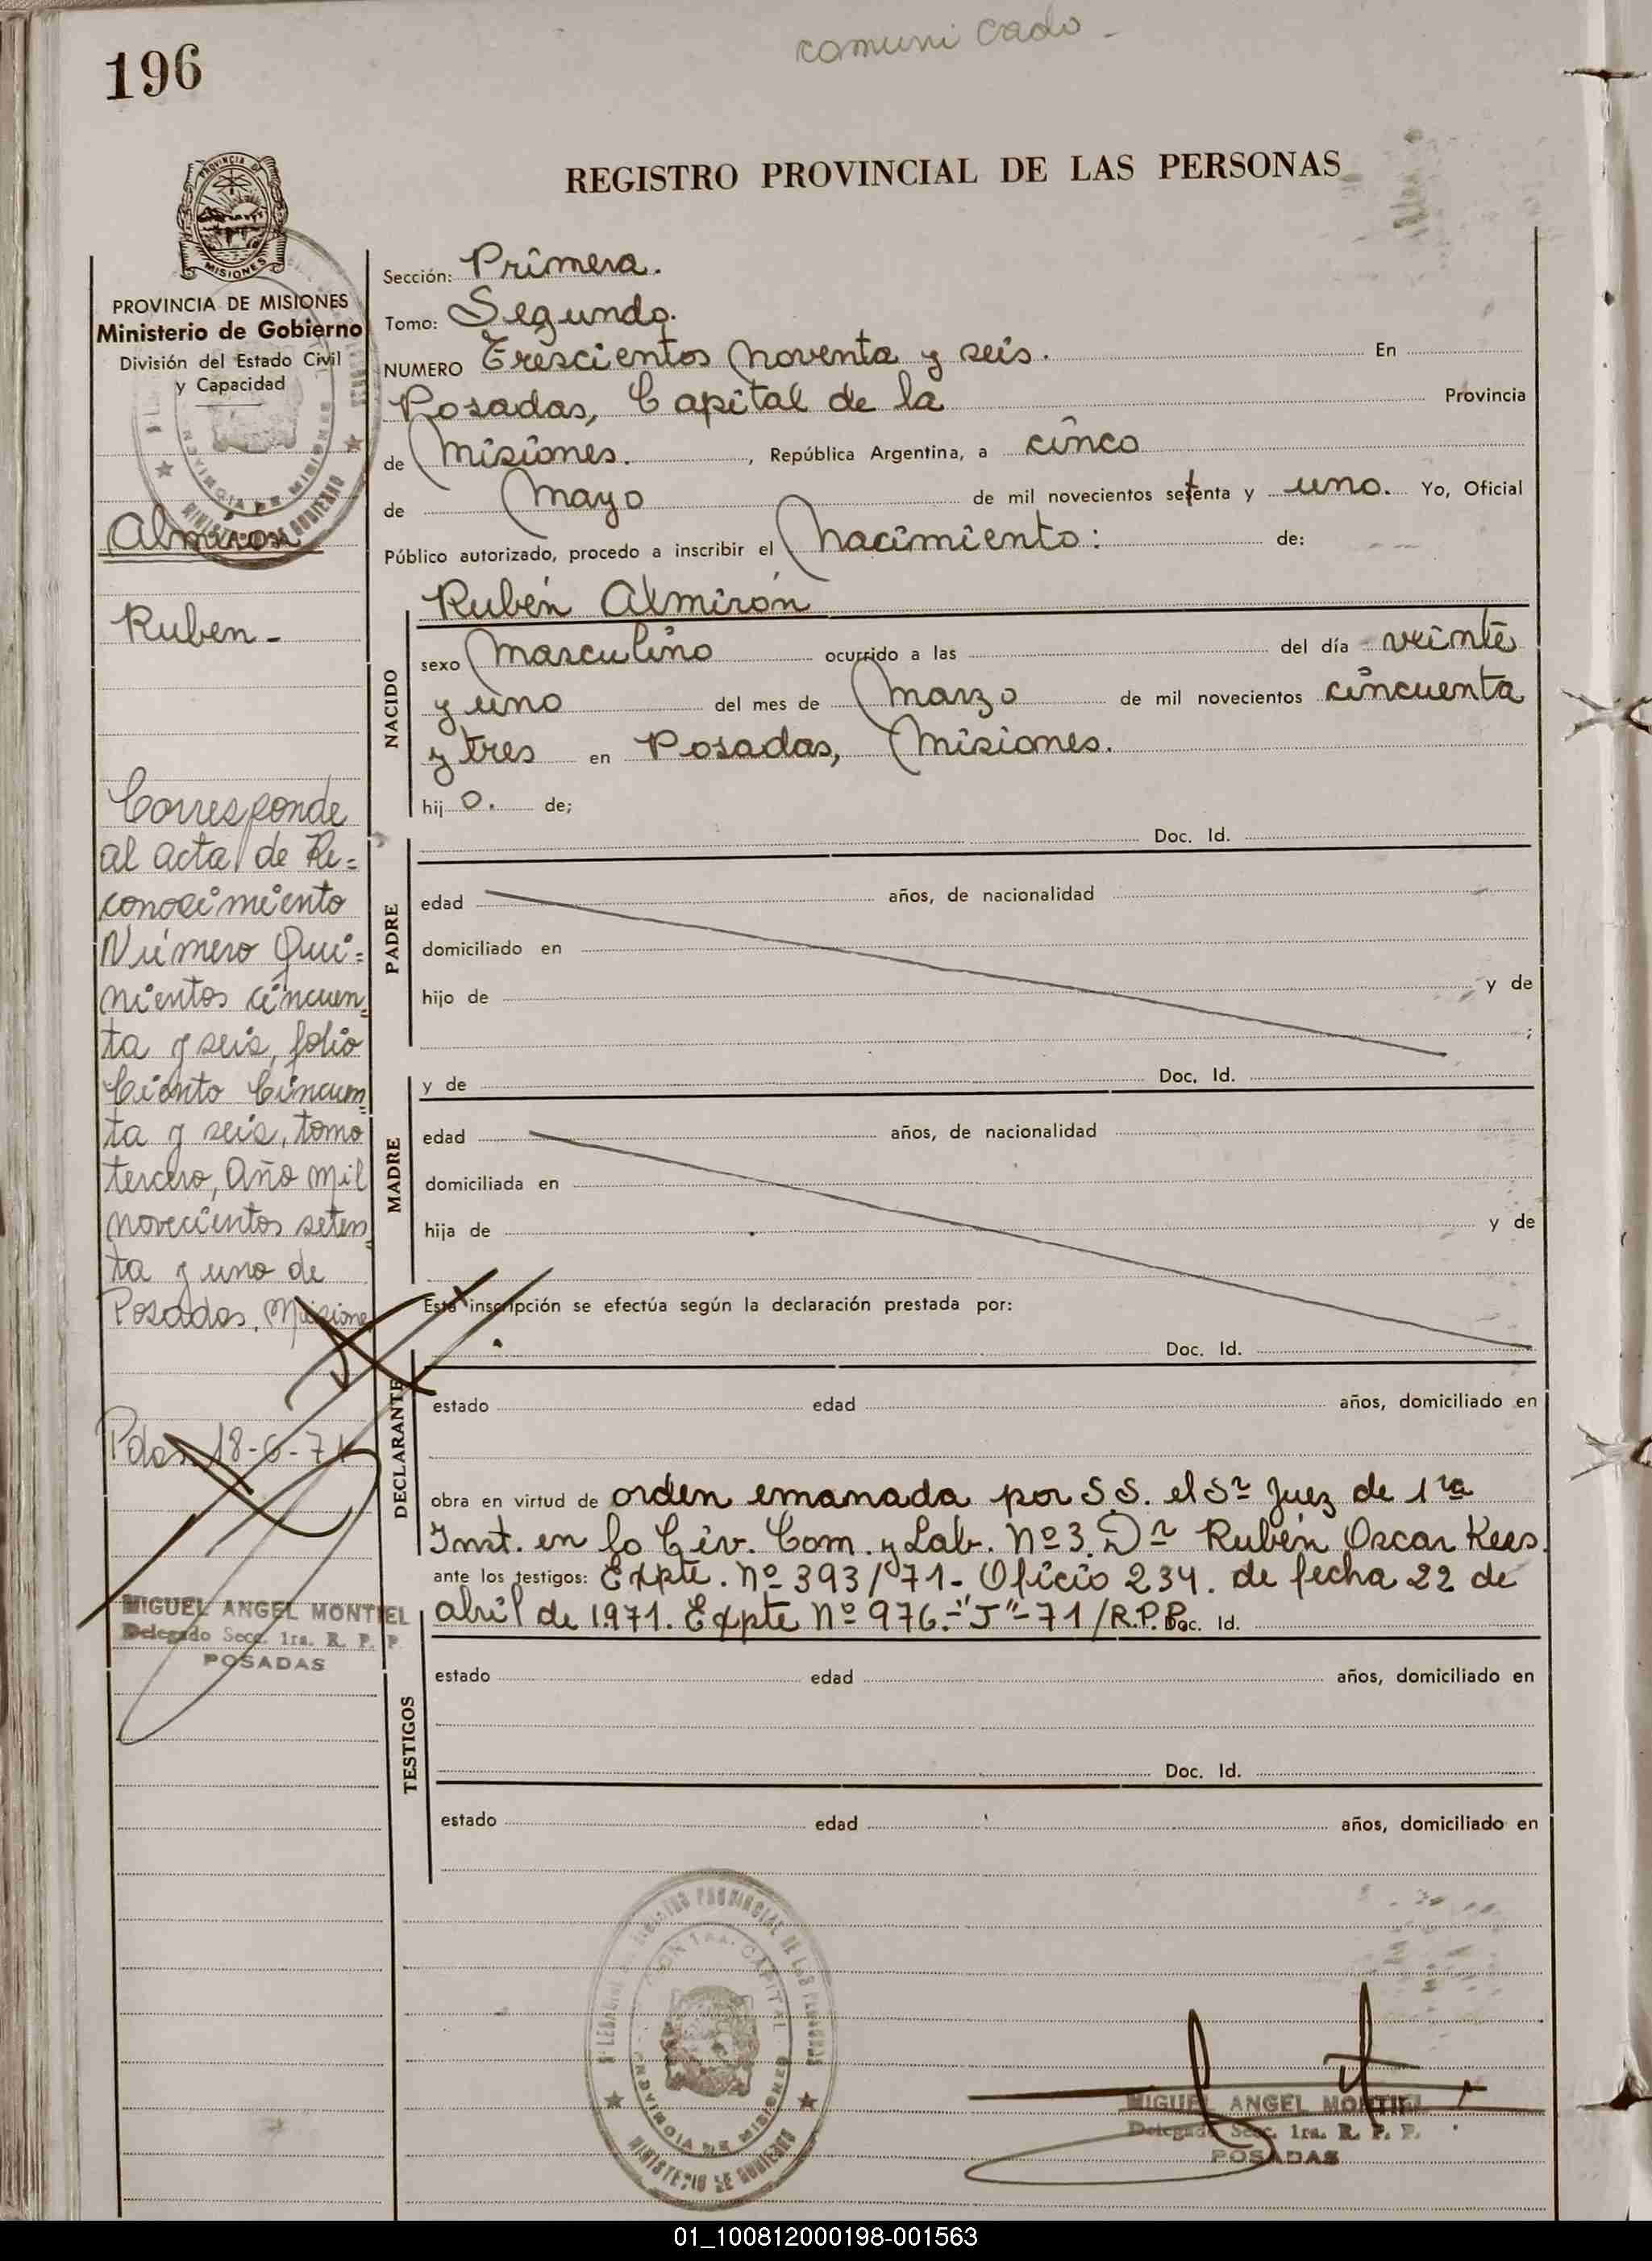 comunicado -
196
PROVINCIA DE
MISIONES
REGISTRO PROVINCIAL DE LAS PERSONAS
PROVINCIA DE MISIONES
Ministerio de Gobierno
División del Estado Civil
y Capacidad
Almirón
Ruben -
Corresponde
al acta de Re=
conocimiento
Número Qui=
nientos cincuen=
ta y seis, folio
Ciento Cincuen=
ta y seis, tomo
tercero, Año mil
novecientos seten=
ta y uno de
Posadas, Misiones
Pdas, 18-6-71
MIGUEL ANGEL MONTIEL
Delegado Secc. 1ra. R. P. P.
POSADAS
Sección: Primera.
Tomo: Segundo.
NUMERO Trescientos noventa y seis. En
Posadas, Capital de la Provincia
de Misiones. , República Argentina, a cinco
de Mayo de mil novecientos setenta y uno. Yo, Oficial
Público autorizado, procedo a inscribir el Nacimiento: de:
Rubén Almirón
NACIDO
sexo Masculino ocurrido a las del día veinte
y uno del mes de Marzo de mil novecientos cincuenta
y tres en Posadas, Misiones.
hijo. de;
Doc. Id.
PADRE
edad años, de nacionalidad
domiciliado en
hijo de y de
;
y de Doc. Id.
MADRE
edad años, de nacionalidad
domiciliada en
hija de y de
Esta inscripción se efectúa según la declaración prestada por:
Doc. Id.
DECLARANTE
estado edad años, domiciliado en
obra en virtud de orden emanada por S.S. el Sr Juez de 1ra
Inst. en lo Civ. Com. y Lab. Nº 3. Dr Rubén Oscar Kees.
ante los testigos: Expte. Nº 393/71- Oficio 234. de fecha 22 de
abril de 1971. Expte Nº 976.-"J"-71/R.P.P. Doc. Id.
TESTIGOS
estado edad años, domiciliado en
Doc. Id.
estado edad años, domiciliado en
REGISTRO PROVINCIAL DE LAS PERSONAS
CAPITAL
PROVINCIA DE MISIONES
MINISTERIO DE GOBIERNO
MIGUEL ANGEL MONTIEL
Delegado Secc. 1ra. R. P. P.
POSADAS
01_100812000198-001563